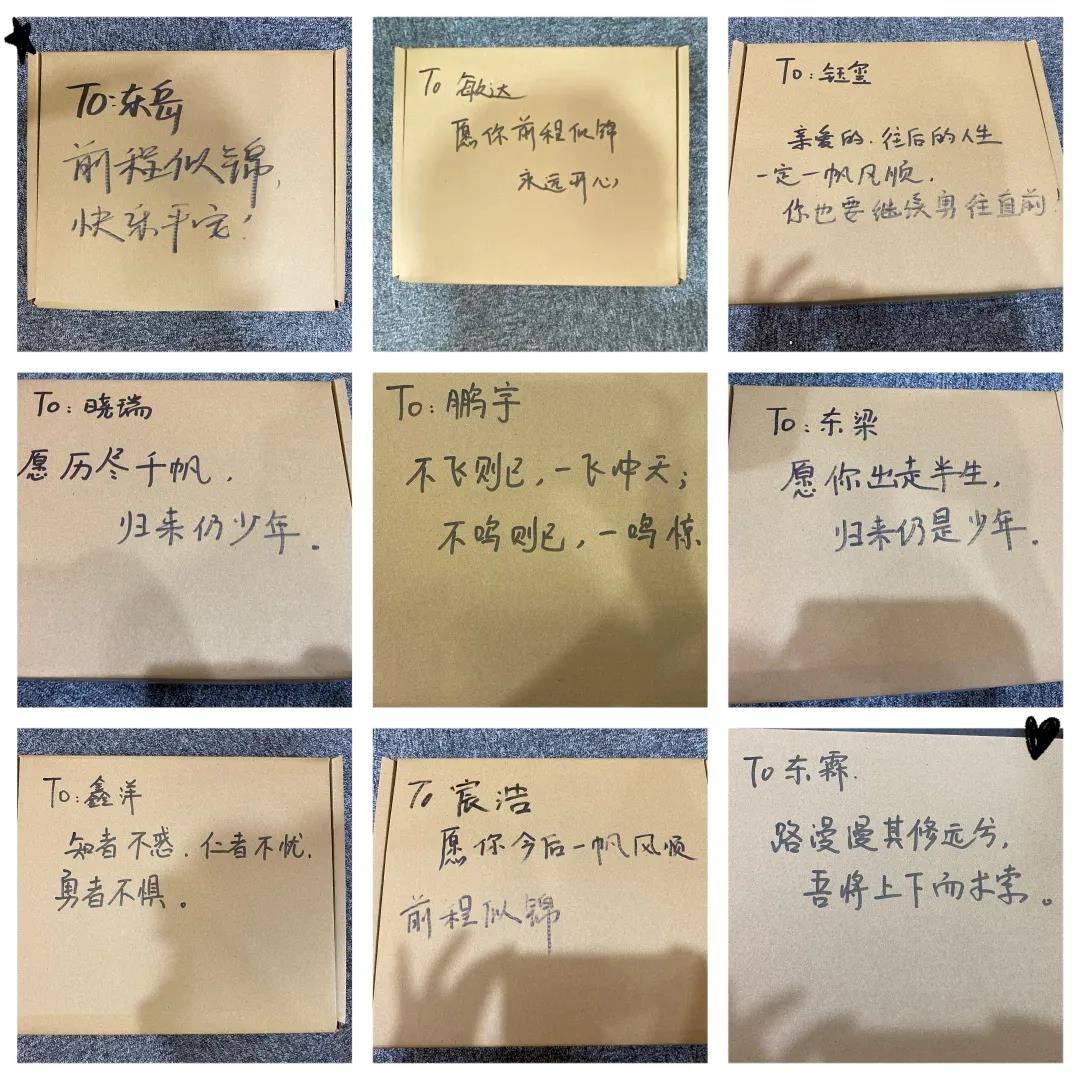 To:东岳
前程似锦,
快乐平安!
To 敏达
愿你前程似锦
永远开心
To:钰玺
亲爱的.往后的人生
一定一帆风顺.
你也要继续勇往直前!
To:晓瑞
愿历尽千帆,
归来仍少年。
To:鹏宇
不飞则已,一飞冲天;
不鸣则已,一鸣惊
To:东梁
愿你出走半生,
归来仍是少年。
To:鑫洋
知者不惑.仁者不忧.
勇者不惧。
To 宸浩
愿你今后一帆风顺
前程似锦
To 东霖.
路漫漫其修远兮,
吾将上下而求索。